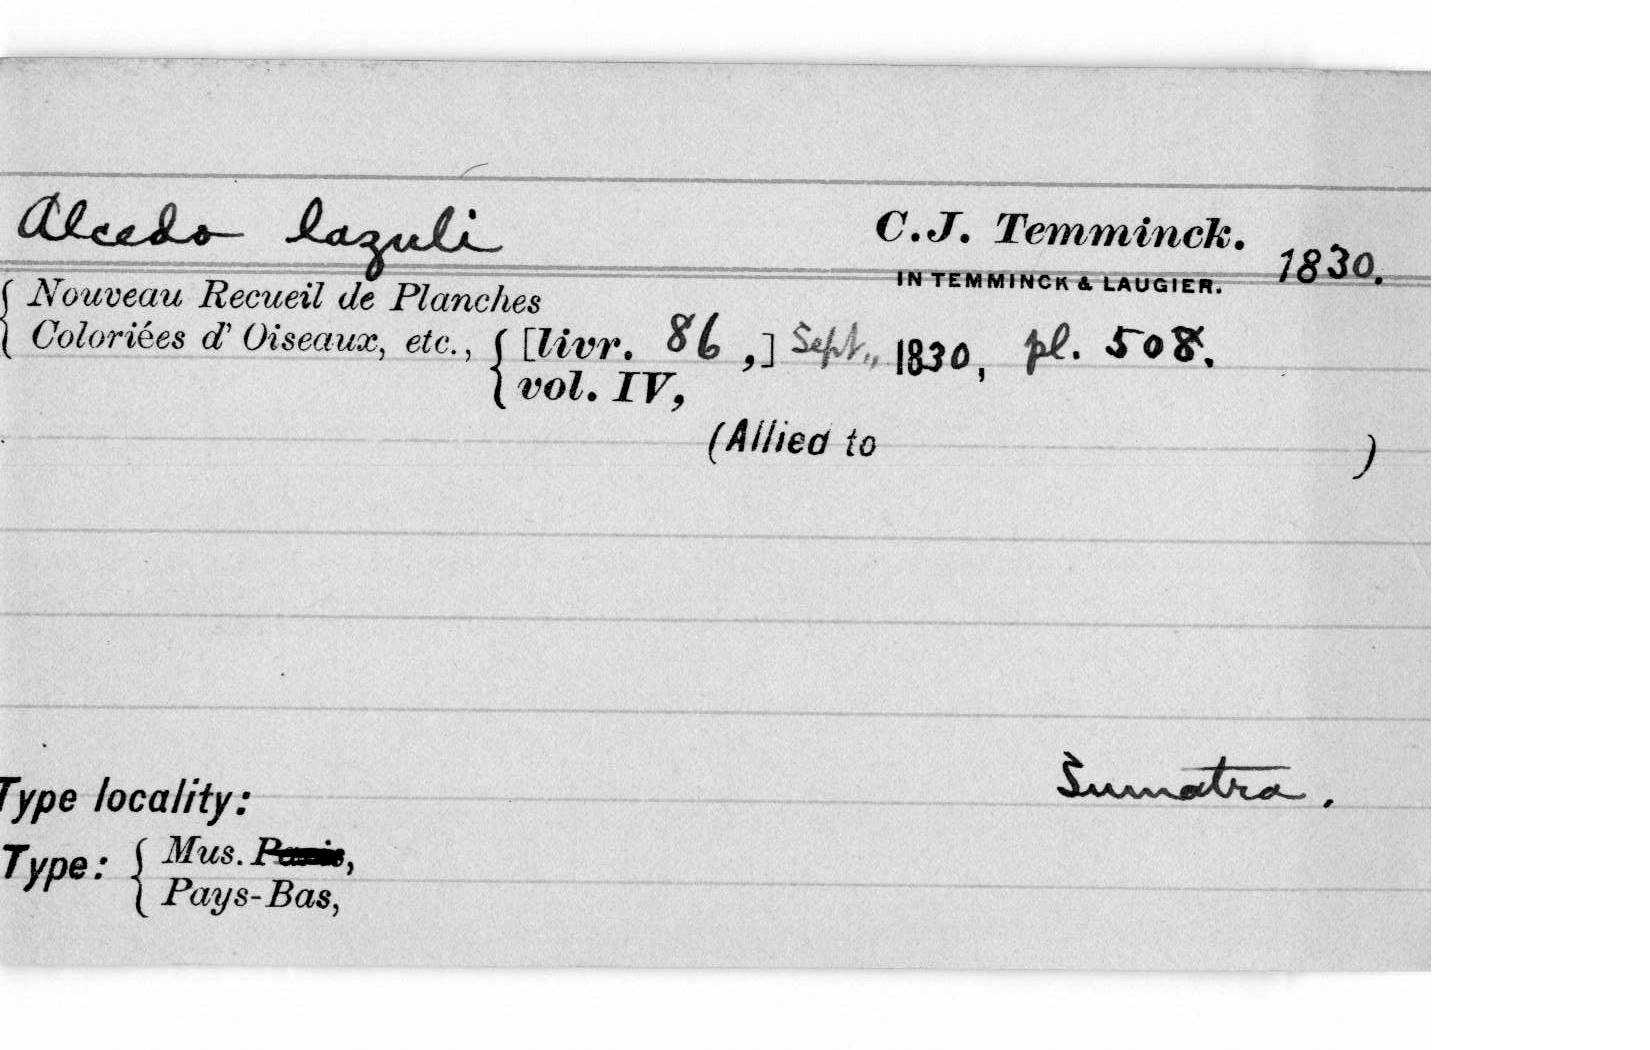 Alcedo lazuli C.J. Temminck. 1830.
IN TEMMINCK & LAUGIER.
{ Nouveau Recueil de Planches
Coloriées d' Oiseaux, etc., { [livr. 86 ,] Sept., 1830, pl. 508.
vol. IV,
(Allied to )
Type locality: Sumatra.
Type: { Mus. Paris,
Pays-Bas,